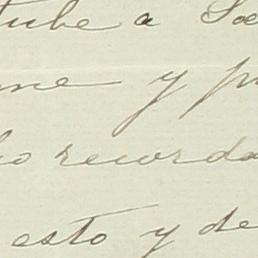 tube a
me y
recorda
esto y de